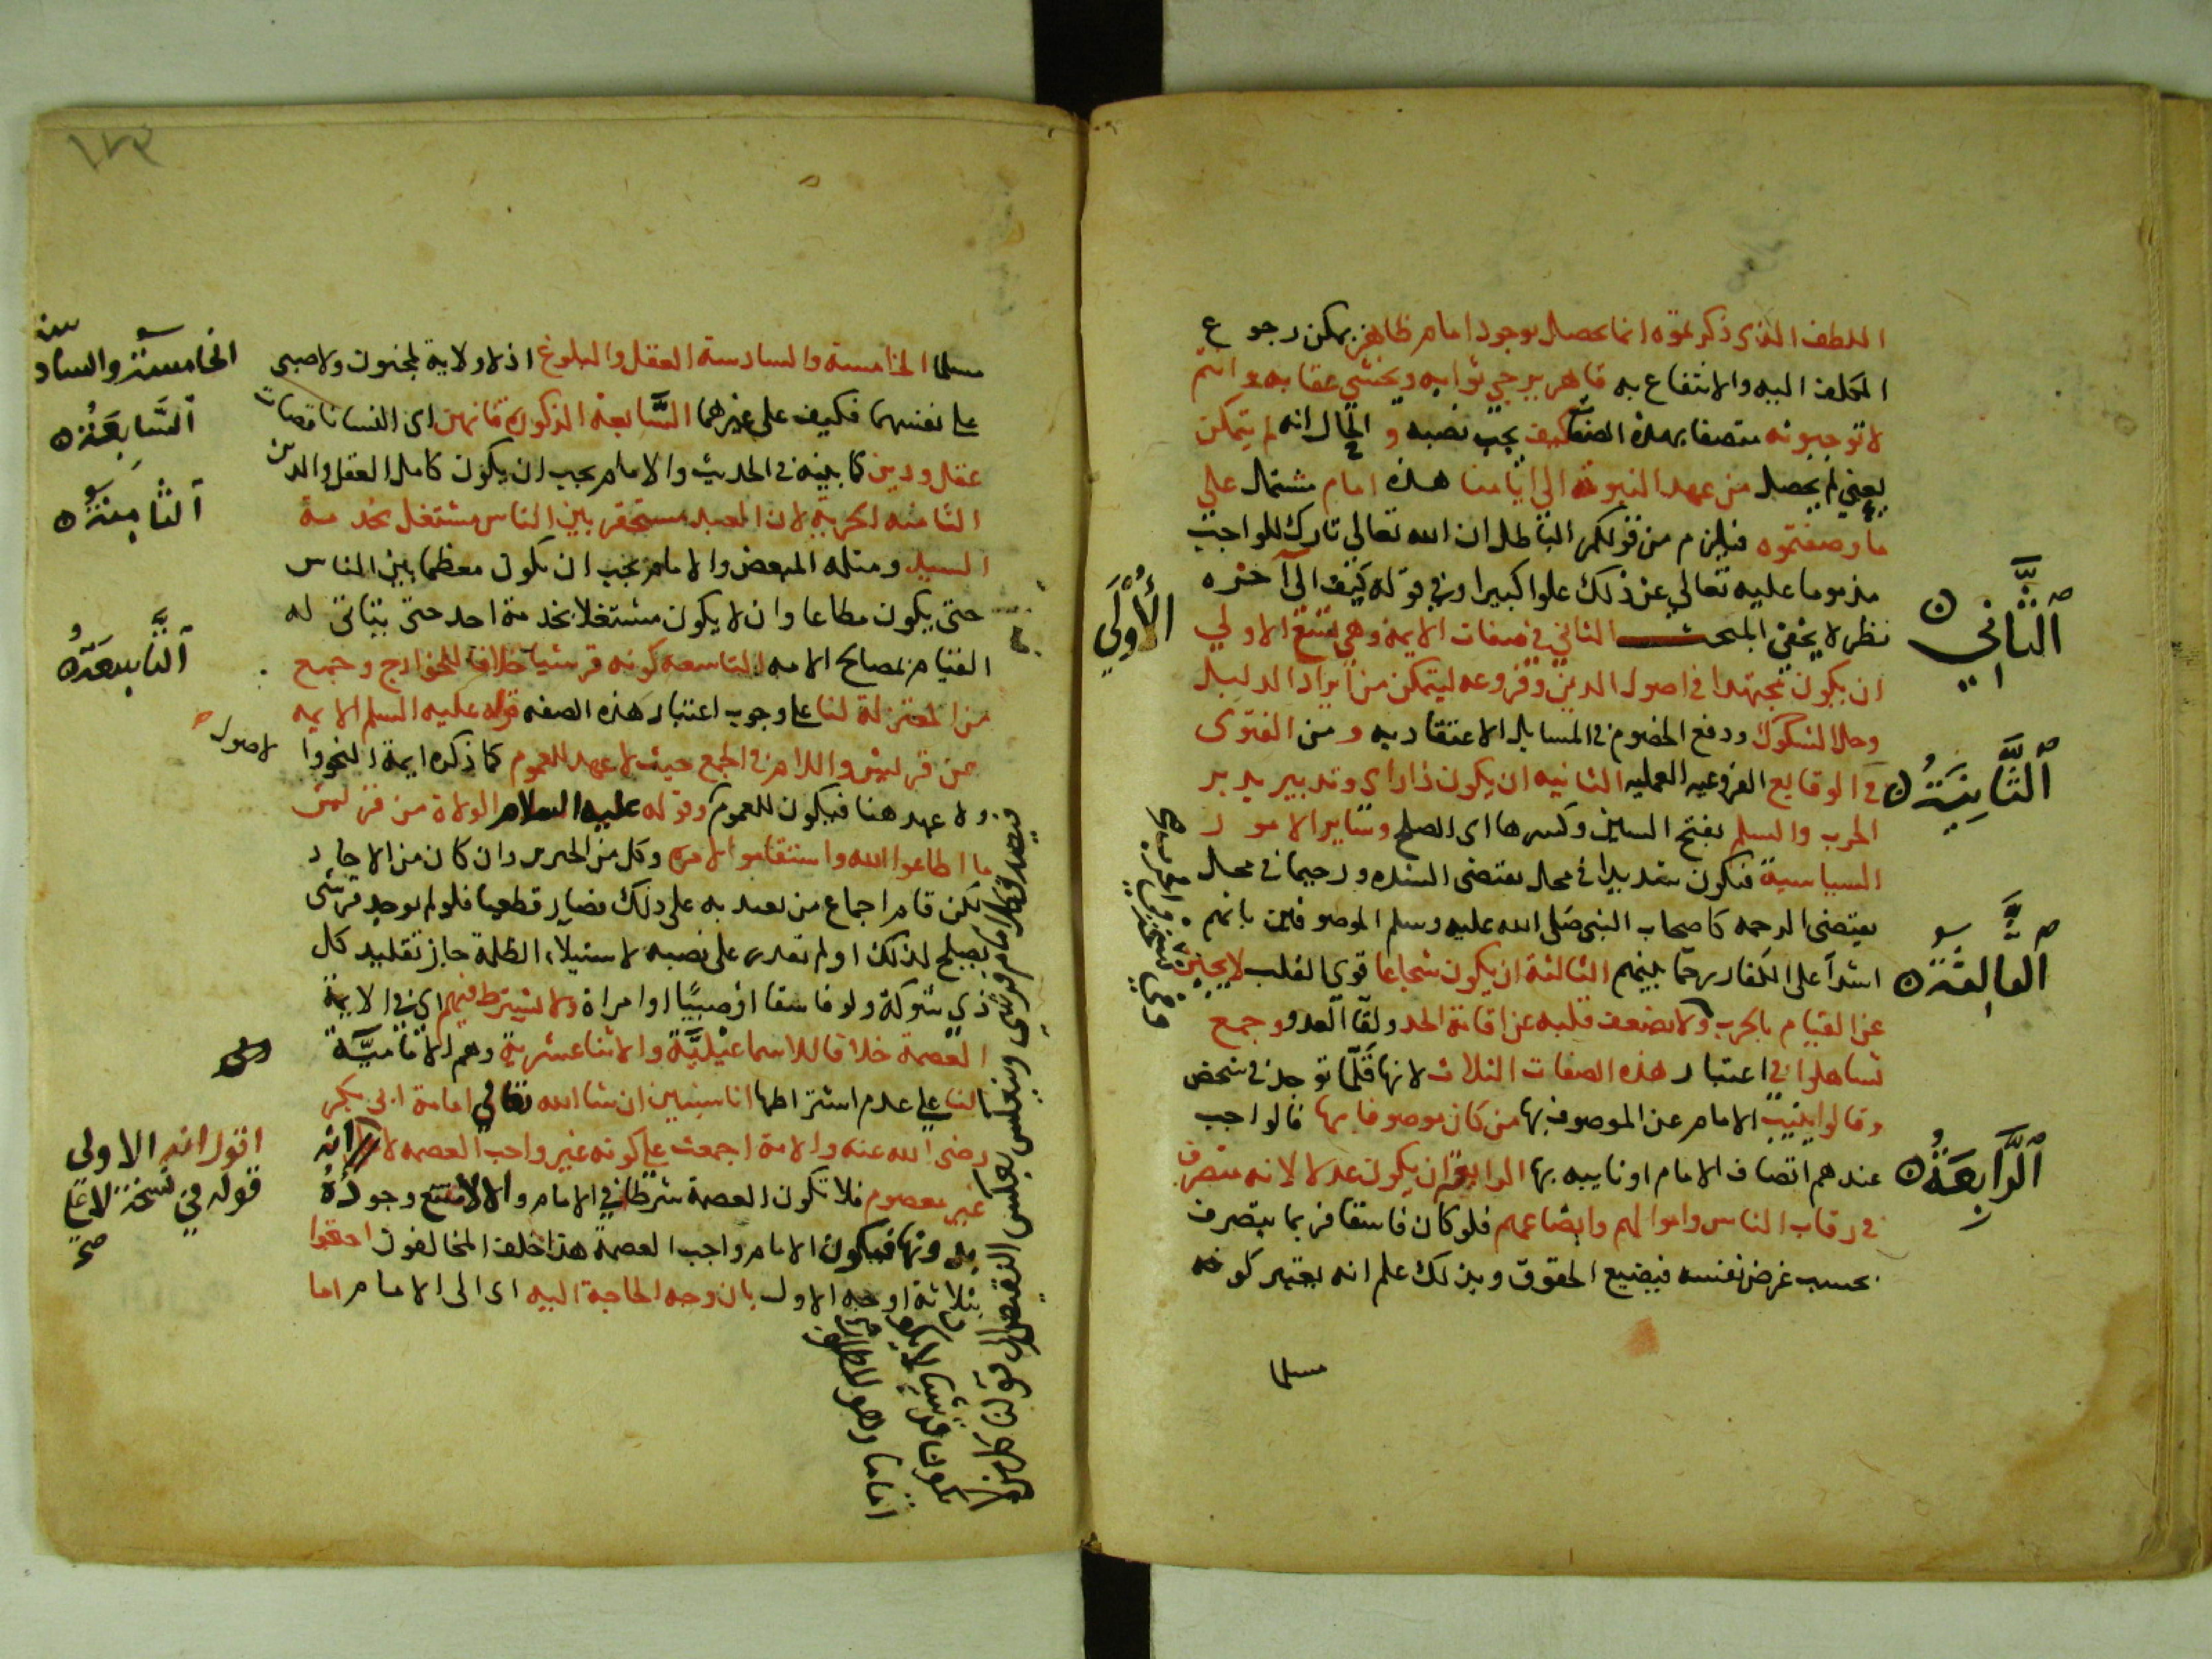 اللطف الذى ذكرتموه انما يحصل بوجود امام ظاهر يمكن رجوع
المكلف اليه والانتفاع به قاهر يرجي ثوابه ويخشي عقابه وانتم
لا توجبونه متصفا بهذه الصفات فكيف يجب نصبه و الحال انه لم يتمكن
يعني لم يحصل من عهد النبوة الى ايامنا هذه امام مشتمل على
ما وصفتموه فيلزم من قولكم الباطل ان الله تعالي تارك للواجب
مذموما عليه تعالي عن ذلك علوا كبيرا وفي قوله كيف الى آخره
نظر لا يخفى المبحث الثاني في صفات الايمة وهي تسع الاولي
ان يكون مجتهدا في اصول الدين وفروعه ليتمكن من ايراد الدليل
وحل الشكوك ودفع الخصوم في المسايل الاعتقاديه ومن الفتوى
في الوقايع الفروعيه العمليه الثانيه ان يكون ذا راى وتدبير يدبر
الحرب والسلم بفتح السين وكسرها اى الصلح وساير الامور
السياسية فيكون شديدا في محل يقتضى الشده ورحيما في محل
يقتضى الرحمه كاصحاب النبى صلى الله عليه وسلم الموصوفين بانهم
اشدآ على الكفار رحما بينهم الثالثة ان يكون شجاعا قوى القلب لا يجبن
عن القيام بالحرب ولا يضعف قلبه عن اقامة الحد ولقآ العدو وجمع
تساهلوا في اعتبار هذه الصفات الثلاث لانها قلما توجد في شخص
وقالوا ينيب الامام عن الموصوف بها من كان موصوفا بها فالواجب
عندهم اتصاف الامام او نايبه بها الرابعة ان يكون عدلا لانه متصرف
في رقاب الناس واموالهم وابضاعهم فلو كان فاسقا فربما يتصرف
بحسب غرض نفسه فيضيع الحقوق وبذلك علم انه يعتبر كونه
مسلما
الثاني
الأولي
الثانية
الثالثة
الرابعة
١٧٣
مسلما الخامسة والسادسة العقل والبلوغ اذ لا ولاية لمجنون ولا صبى
على نفسهما فكيف على غيرهما السابعة الذكورة فانهن اى النسا ناقصات
عقل ودين كما بينه في الحديث والامام يجب ان يكون كامل العقل والدين
الثامنه الحريه لان العبد مستحقر بين الناس مشتغل بخدمة
السيد ومثله المبعض والامام يجب ان يكون معظما بين الناس
حتى يكون مطاعا وان لا يكون مشتغلا بخدمة احد حتى يتاتى له
القيام بمصالح الامه التاسعه كونه قرشيا خلافا للخوارج وجمع
من المعتزلة لنا على وجوب اعتبار هذه الصفه قوله عليه السلم الايمه
من قريش واللام في الجمع حيث لا عهد للعموم كما ذكره ايمة النحو
ولا عهد هنا فيكون للعموم وقوله عليه السلام الولاة من قريش
ما اطاعوا الله واستقاموا لامره وكل من الخبرين وان كان من الاحاد
لكن قام اجماع من يعتد به على ذلك فصار قطعيا فلو لم يوجد قرشى
يصلح لذلك او لم نقدر على نصبه لاستيلاء الظلمة جاز تقليد كل
ذي شوكة ولو فاسقا او صبيا او امراة ولا تشترط فيهم اى في الايمة
العصمة خلافا للاسماعيلية والاثناعشرية وهم الامامية
لنا على عدم اشتراطها انا سنبين ان شا الله تعالي امامة ابى بكر
رضى الله عنه والامة اجمعت على كونه غير واجب العصمه لا انه
غير معصوم فلا تكون العصمة شرطا في الامام والا لامتنع وجوده
بدونها فيكون الامام واجب العصمة هذا خلف المخالفون احتجوا
بثلاثة اوجه الاول بان وجه الحاجة اليه اى الى الامام اما
الخامسة والسادسة
السابعة
الثامنة
التاسعة
لاصول
اقول انه الاولى
قوله في نسخة
صح